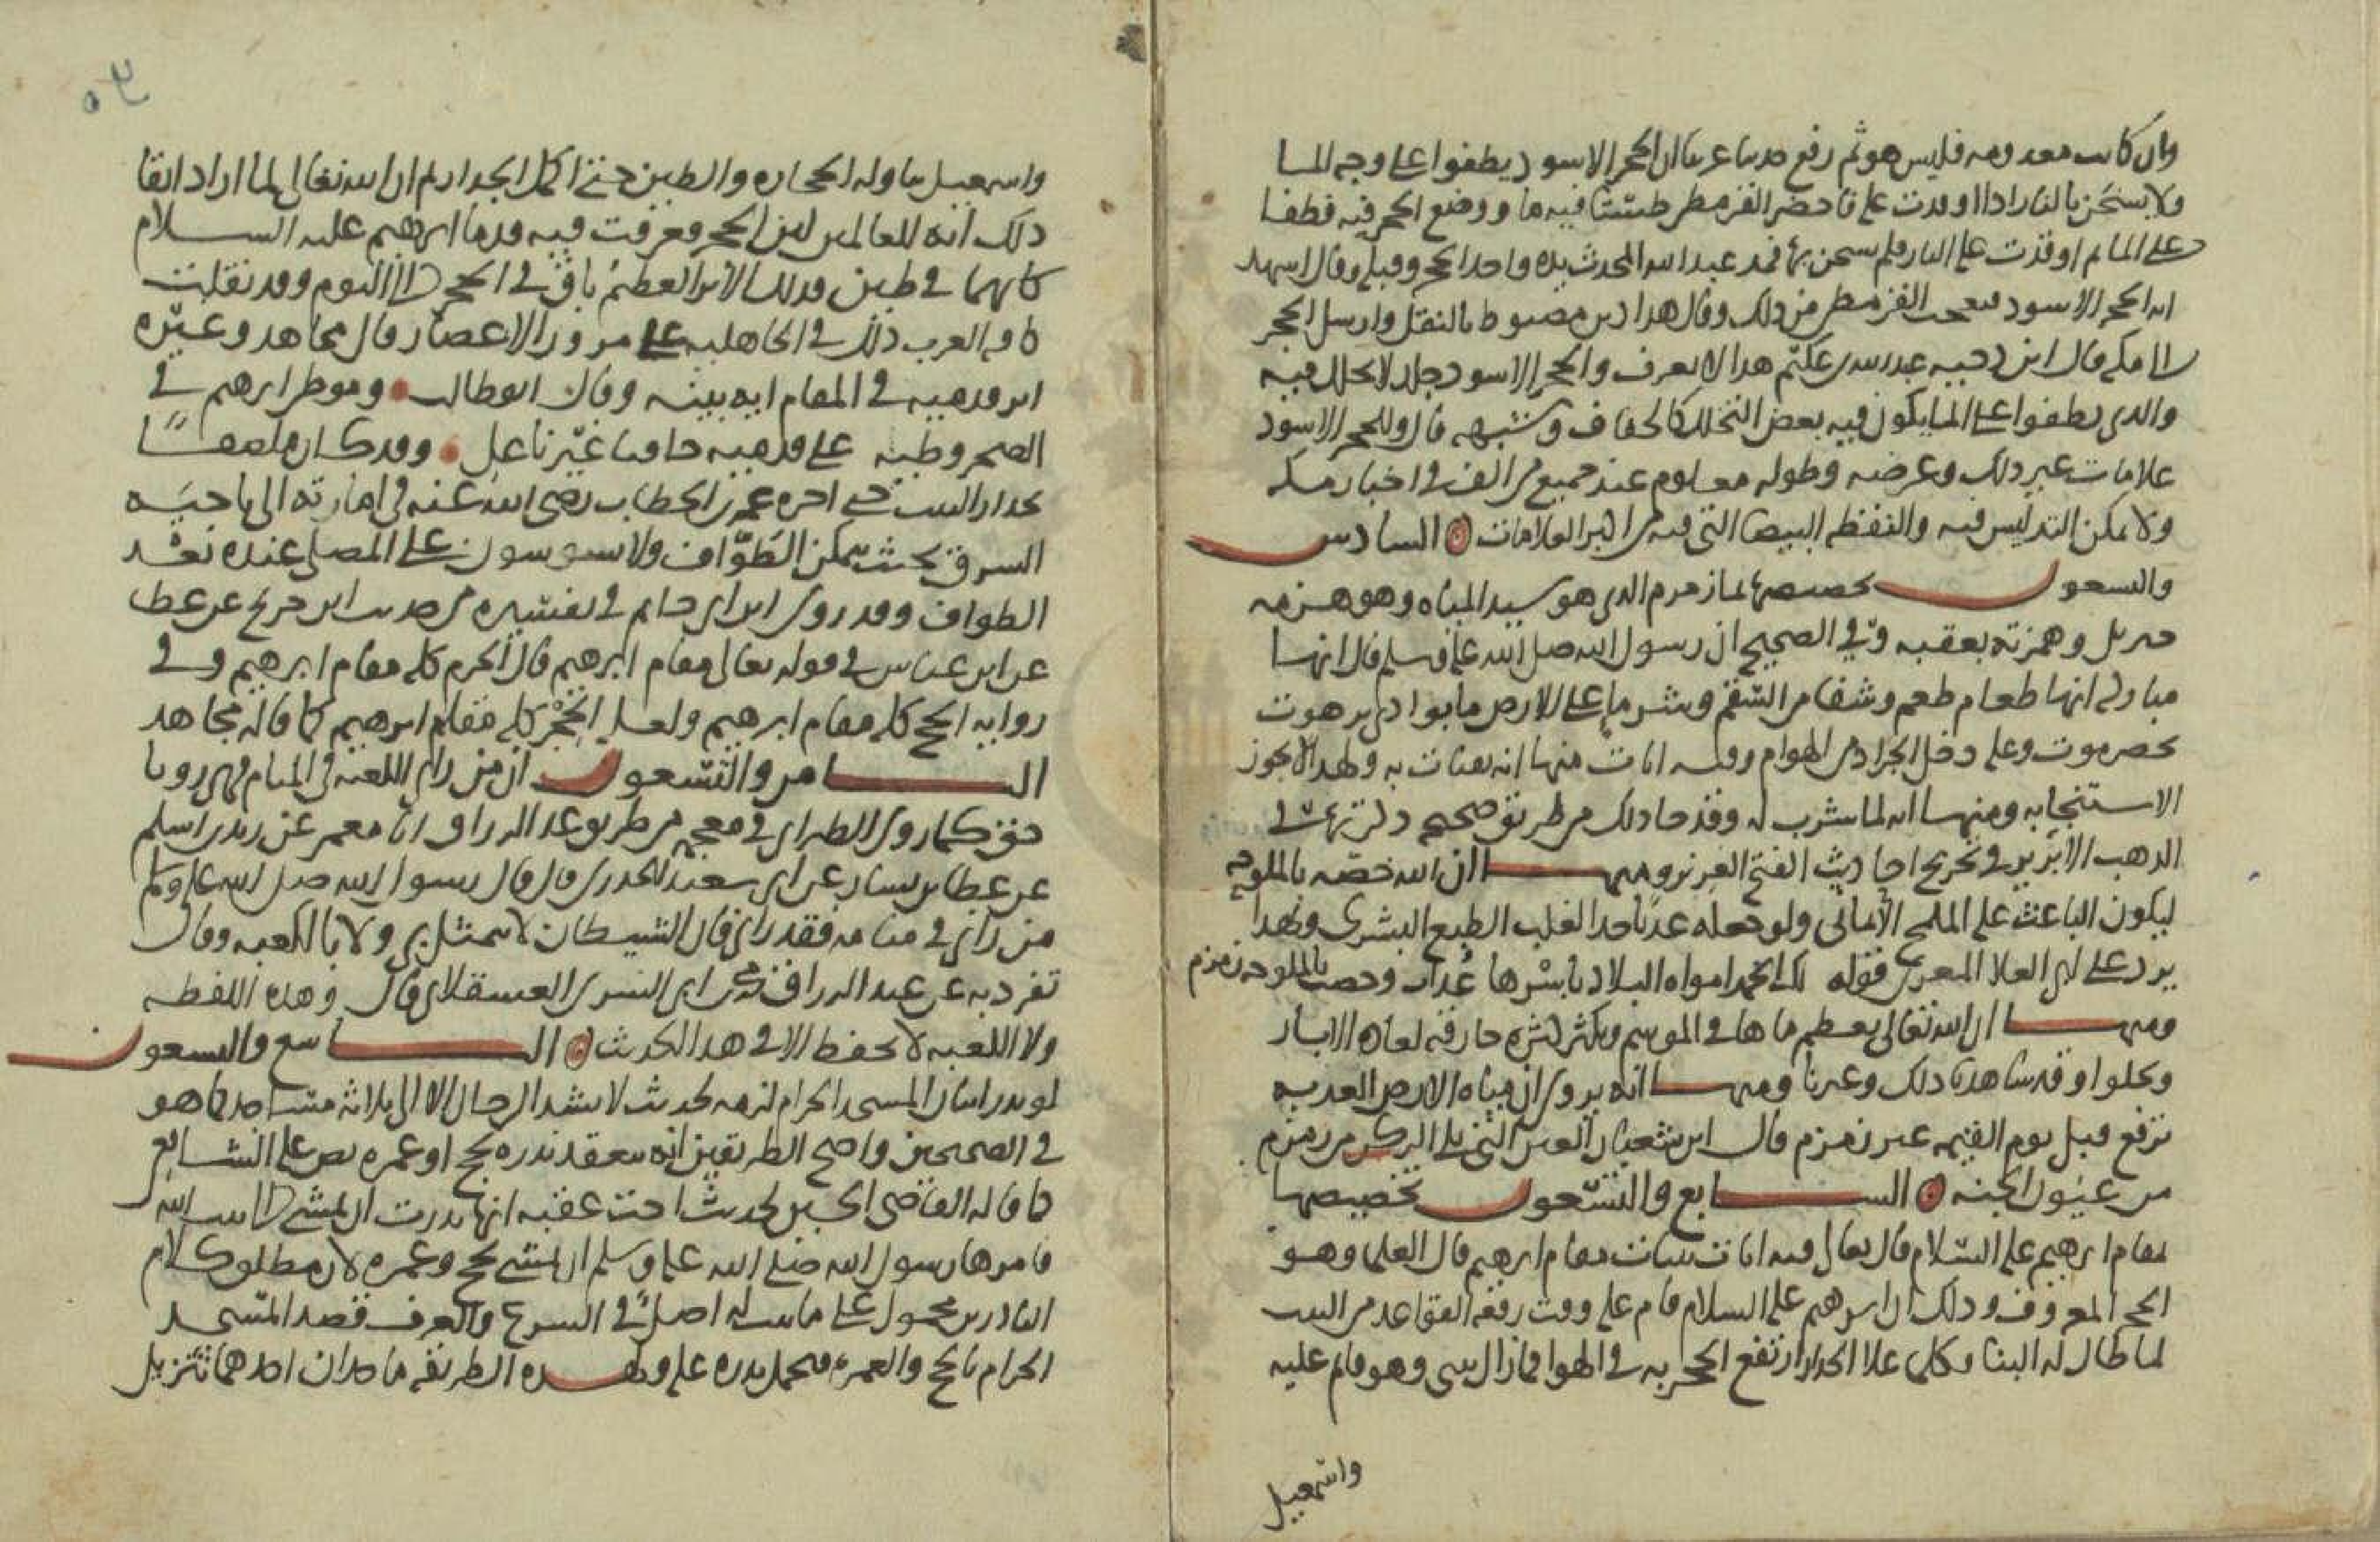 وان كانت معدومه فليس هو ثم رفع حديثا غريبا ان الحجر الاسود يطفوا على وجه الما
ولا يسخن بالنار اذا اوقدت عليه فاحضر القرمطي طشتا فيه ما ووضع الحجر فيه فطفا
على الما ثم اوقدت عليه النار فلم يسخن بها فمد عبد الله المحدث يده واخذ الحجر وقبله وقال اشهد
انه الحجر الاسود فتعجب القرمطي من ذلك وقال هذا دين مضبوط بالنقل وارسل الحجر
الى مكه قال ابن دحيه عبد الله بن عكيم هذا لا يعرف والحجر الاسود جلد لا تخلل فيه
والذي يطفوا على الما يكون فيه بعض التخلل كالخفاف وشبهه قال وللحجر الاسود
علامات غير ذلك وعرضه وطوله معلوم عند جميع من الف في اخبار مكه
ولا يمكن التدليس فيه والنقطه البيضا التي فيه من اكبر العلامات السادس
والتسعون تخصيصها بما زمزم الذي هو سيد المياه وهو هزمه
جبريل وهمزته بعقبه وفي الصحيح ان رسول الله صلى الله عليه وسلم قال انها
مباركه انها طعام طعم وشفا من السقم وشر ما على الارض ما بوادي برهوت
بحضرموت وعليه دخل الجراد من الهوام وفيه ايات منها انه يقتات به ولهذا لا يجوز
الاستنجا به ومنها انه لما شرب له وقد جا ذلك من طريق صحيح ذكرتها في
الذهب الابريز في تخريج احاديث الفتح العزيز ومنها ان الله خصه بالملوحه
ليكون الباعث عليه الملح الايماني ولو جعله عذبا جدا لغلب الطبع البشري وبهذا
يرد على ابي العلا المعري قوله لك الحمد امواه البلاد باسرها عذاب وخصت بالملوحه زمزم
ومنها ان الله تعالى يعظم ماها في الموسم ويكثر كثره خارقه لعاده الابار
ويحلوا وقد شاهدنا ذلك وغيرنا ومنها انه يروى ان مياه الارض العذبه
ترفع قبل يوم القيمه غير زمزم قال ابن شعبان العين التي تلي الركن من زمزم
من عيون الجنه السابع والتسعون تخصيصها
بمقام ابرهيم عليه السلام قال تعالى فيه ايات بينات مقام ابرهيم قال العلما وهو
الحجر المعروف وذلك ان ابرهيم عليه السلام قام عليه وقت رفعه القواعد من البيت
لما طال له البنا وكلما علا الجدار ارتفع الحجر به في الهوا فما زال يبني وهو قايم عليه
واسمعيل
واسمعيل يناوله الحجاره والطين حتى اكمل الجدار ثم ان الله تعالى لما اراد ابقا
ذلك ايه للعالمين لين الحجر فغرقت فيه قدما ابرهيم عليه السلام
كانهما في طين فذلك الاثر العظيم باق في الحجر الى اليوم وقد نقلت
كافه العرب ذلك في الجاهليه على مرور الاعصار وقال مجاهد وغيره
اثر قدميه في المقام ايه بينه وقال ابو طالب وموطي ابرهيم في
الصخر وطئه على قدميه حافيا غير ناعل وقد كان ملصقا
بجدار البيت حتى اخره عمر بن الخطاب رضي الله عنه في امارته الى ناحيه
الشرق بحيث يمكن الطواف ولا يشوشون على المصلي عنده بعد
الطواف وقد روى ابن ابي حاتم في تفسيره من حديث ابن جريج عن عطا
عن ابن عباس في قوله تعالى مقام ابرهيم قال الحرم كله مقام ابرهيم وفي
روايه الحج كله مقام ابرهيم ولعله الحجر كله مقام ابرهيم كما قاله مجاهد
الثامن والتسعون ان من راى الكعبه في المنام فهي رويا
حق كما روى الطبراني في معجمه من طريق عبد الرزاق انا معمر عن زيد بن اسلم
عن عطا بن يسار عن ابي سعيد الخدري قال قال رسول الله صلى الله عليه وسلم
من راني في منامه فقد راني فان الشيطان لا يتمثل بي ولا بالكعبه وقال
تفرد به عن عبد الرزاق محمد بن ابي السري العسقلاني قال وهذه اللفظه
ولا الكعبه لا تحفظ الا في هذا الحديث التاسع والتسعون
لو نذر اتيان المسجد الحرام لزمه لحديث لا تشد الرحال الا الى ثلاثه مساجد كما هو
في الصحيحين واصح الطريقين انه ينعقد نذره بحج او عمره نص عليه الشافعي
كما قاله القاضي الحسين لحديث اخت عقبه انها نذرت ان تمشي الى بيت الله
فامرها رسول الله صلى الله عليه وسلم ان تمشي بحج وعمره لان مطلق كلام
الناذرين محمول على ما ثبت له اصل في الشرع والعرف قصد المسجد
الحرام بالحج والعمره فيحمل نذره عليه ولهذه الطريقه ماخذان احدهما تنزيل